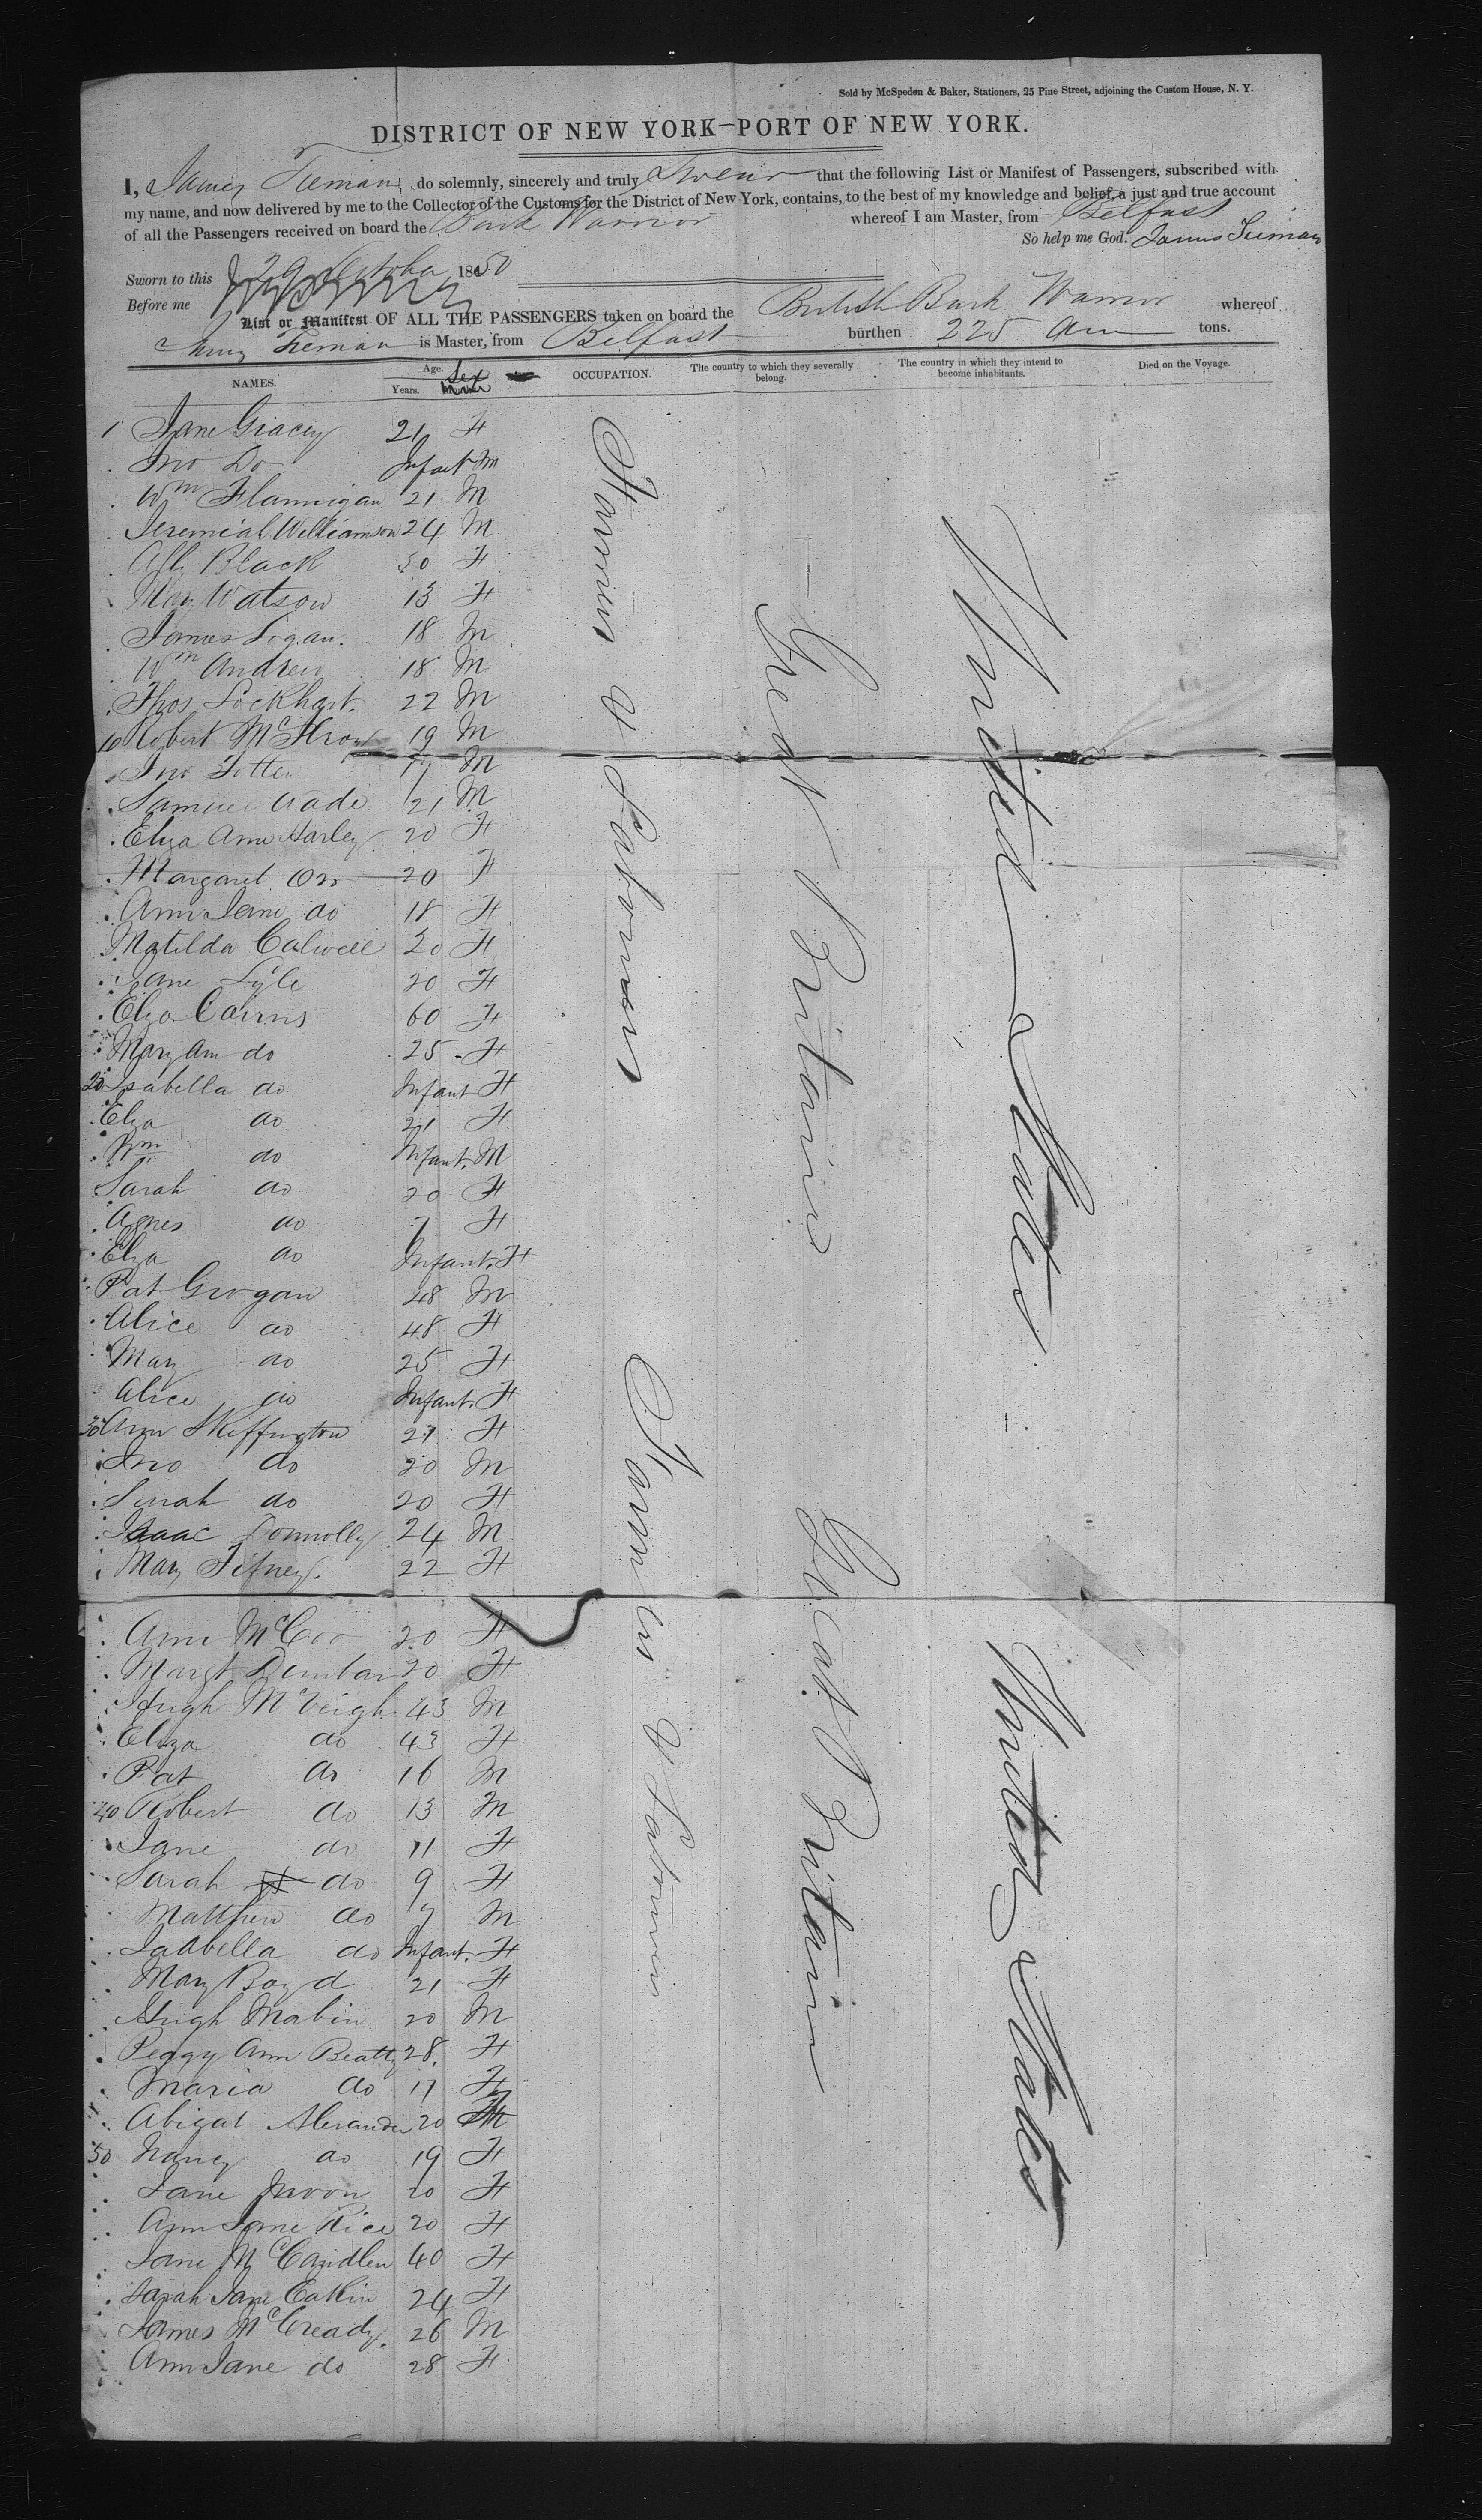 Sold by McSpedon & Baker, Stationers, 25 Pine Street, adjoining the Custom House, N. Y.
DISTRICT OF NEW YORK—PORT OF NEW YORK.
I, James do solemnly, sincerely and truly Swear that the following List or Manifest of Passengers, subscribed with
my name, and now delivered by me to the Collector of the Customs for the District of New York, contains, to the best of my knowledge and belief, a just and true account
of all the Passengers received on board the Bark Warrior whereof I am Master, from Belfast
So help me God. James
Sworn to this 29 October 1850
Before me
List or Manifest OF ALL THE PASSENGERS taken on board the British Bark Warrior whereof
James is Master, from Belfast burthen 225 tons.
NAMES. Age. Years. Sex OCCUPATION. The country to which they severally belong. The country in which they intend to become inhabitants. Died on the Voyage.
1 Jane Gracey 21 F
Jno Do Infant M
Wm Flannigan 21 M
Jeremiah Williamson 24 M
Black F
Mary Watson 13 F
James Logan. 18 M
Wm Andrew 18 M
Thos Lockhart. 22 M
10 Robert 19 M
Jno Totten M
Samuel Wade 21 M
Eliza Ann Harley 20 F
Margaret Orr 20 F
Ann Jane do 18 F
Matilda Calwell 20 F
Jane Lyle 20 F
Eliza Cairns 60 F
Mary Ann do 25 F
20 Isabella do Infant F
Eliza do 21 F
Wm do Infant. M
Sarah do 20 F
Agnes do 7 F
Eliza do Infant. F
Pat Grogan 48 M
Alice do 48 F
Mary do 25 F
Alice do Infant. F
30 Ann Skeffington 21 F
Jno do 20 M
Sarah do 20 F
Isaac Donnolly 24 M
Mary 22 F
Ann McCoo 20 F
Margt Dunbar 20 F
Hugh McVeigh 43 M
Eliza do 43 F
Pat do 16 M
40 Robert do 13 M
Jane do 11 F
Sarah do 9 F
Matthew do 7 M
Isabella do Infant. F
Mary Boyd 21 F
Hugh Mabin 20 M
Peggy Ann Beatty 28. F
Maria do 17 F
Abigal Alexander 20 F
50 Nancy do 19 F
Jane Moon 20 F
Ann Jane Rice 20 F
Jane McCandlen 40 F
Sarah Jane Eakin 24 F
James McCready. 26 M
Ann Jane do 28 F
Farmers & Labourers
Great Britain
United States
Farmers & Labourers
Great Britain
United States